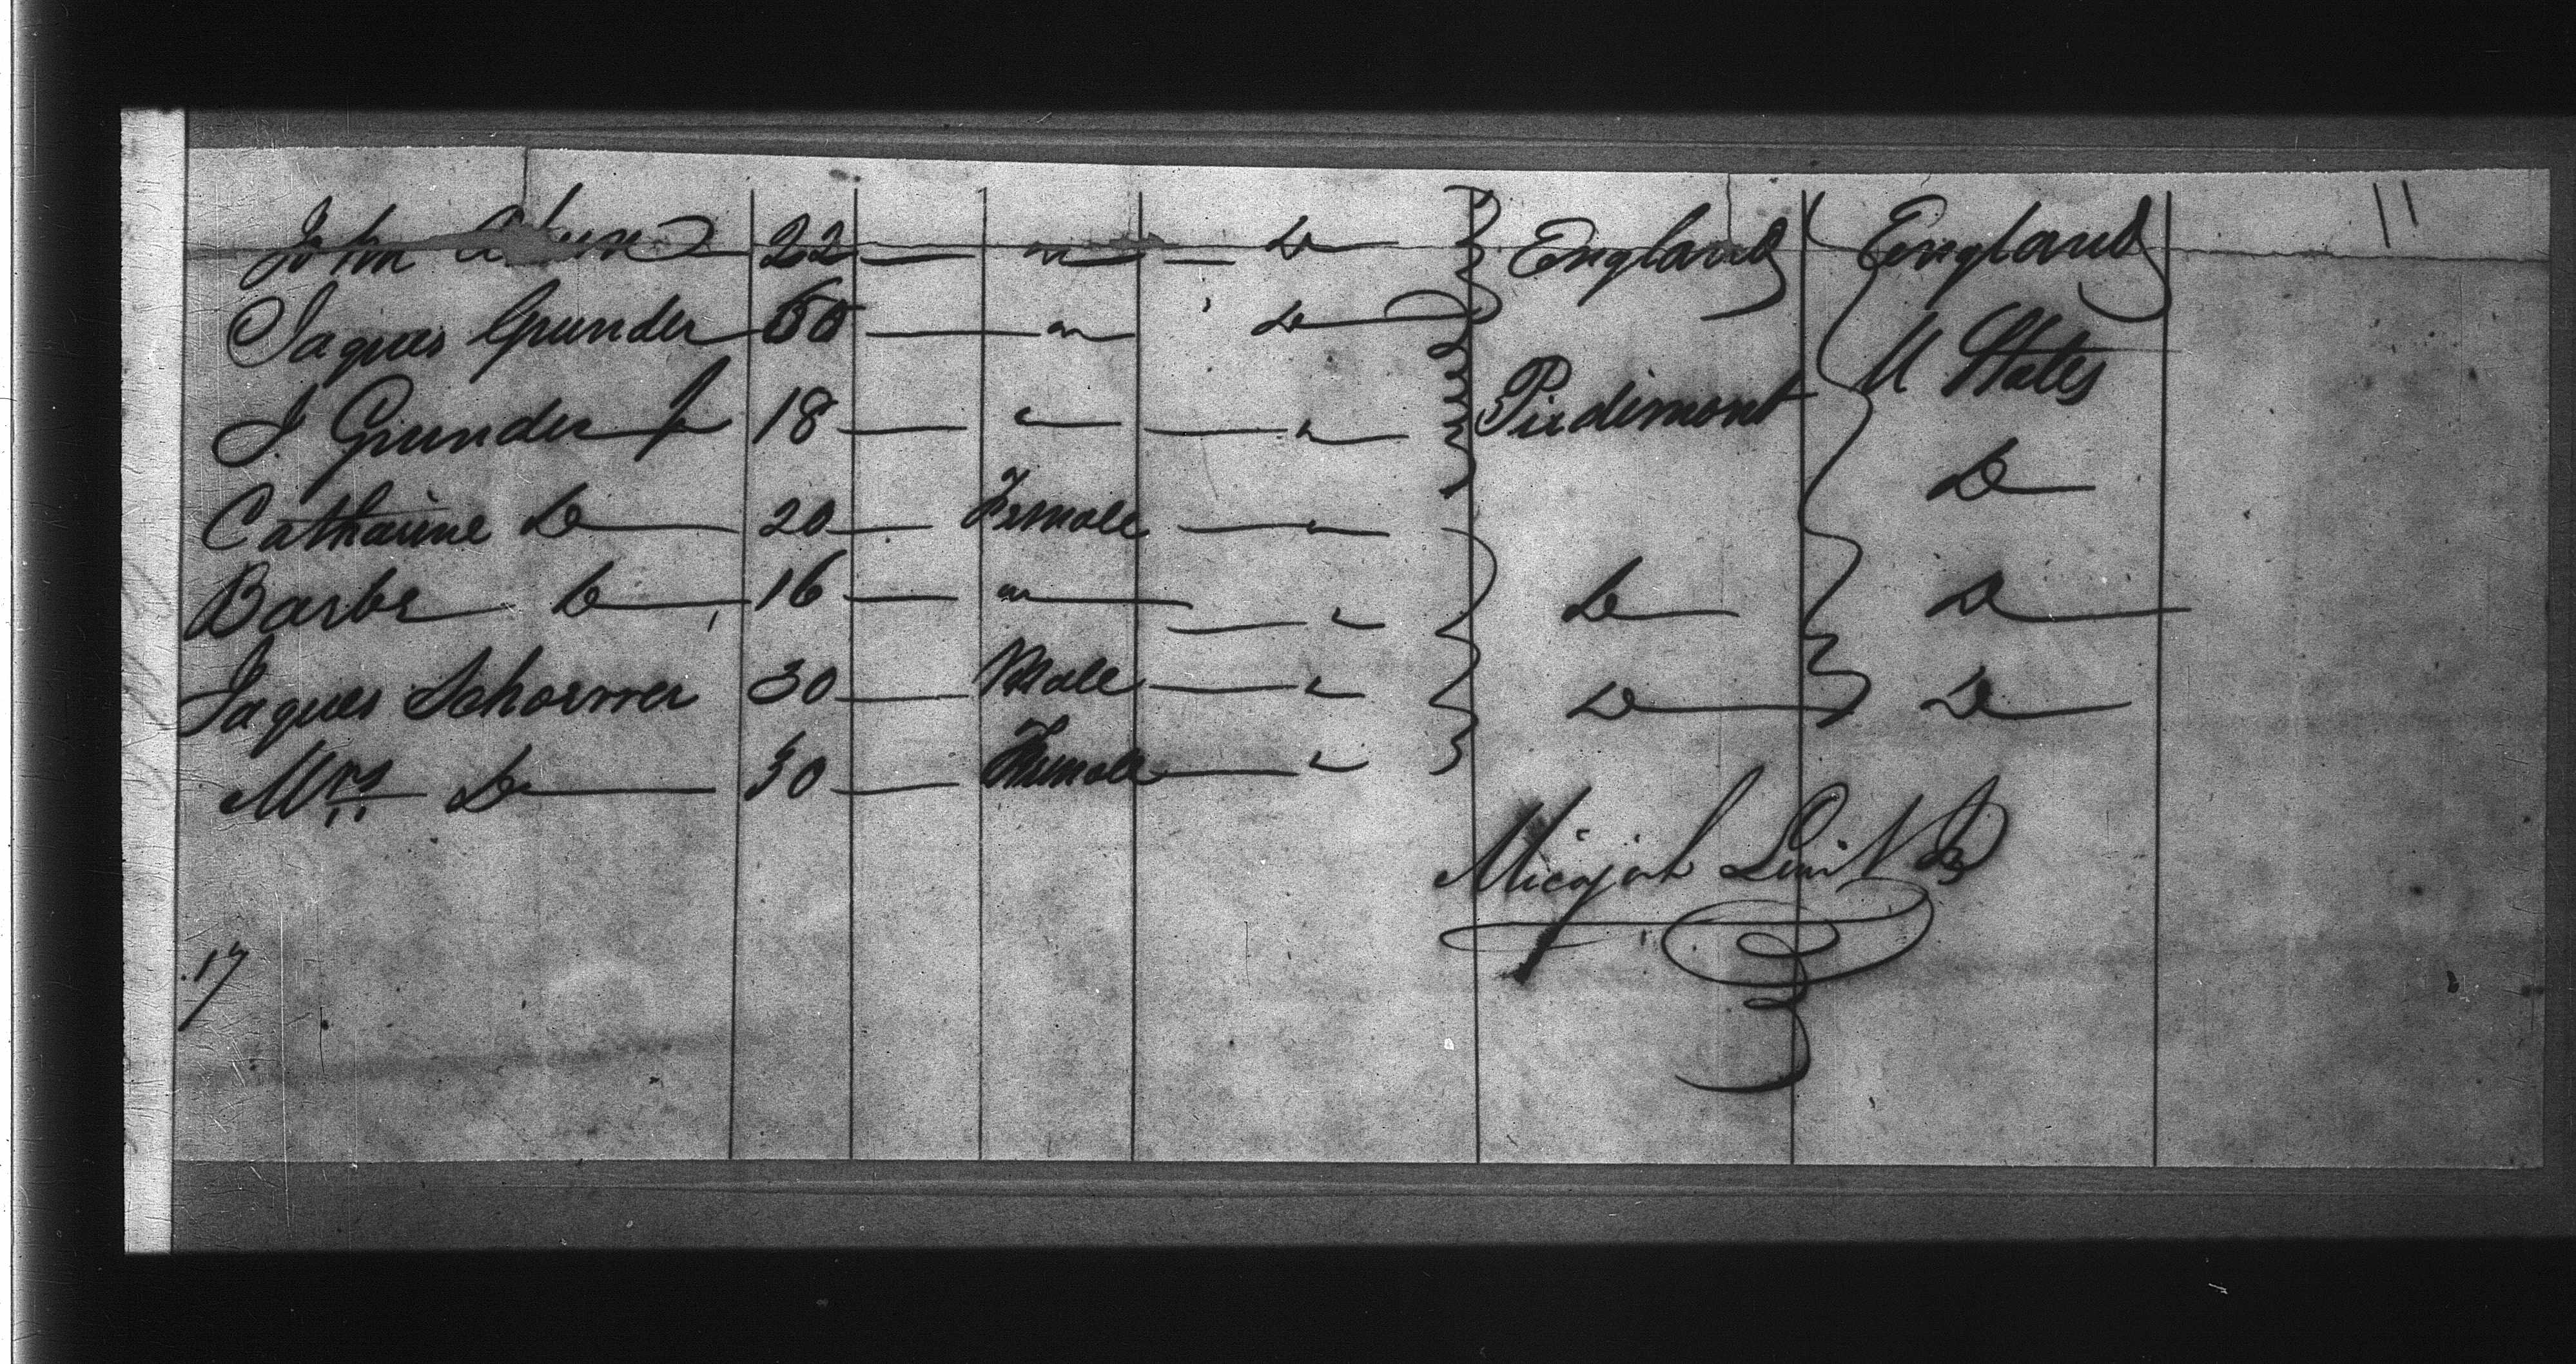 John 22 — " — Do England England 11
Jaques Grunder 50 — " Do U States
J. Grunder Jr 18 — " — " Piedimont
Do
Catharine Do 20 — Female — "
Barbe Do 16 — " — " Do Do
Jaques Schoerrer 30 — Male — " Do Do
Mrs Do 30 — Female — "
Micajah Lunt Jr
17